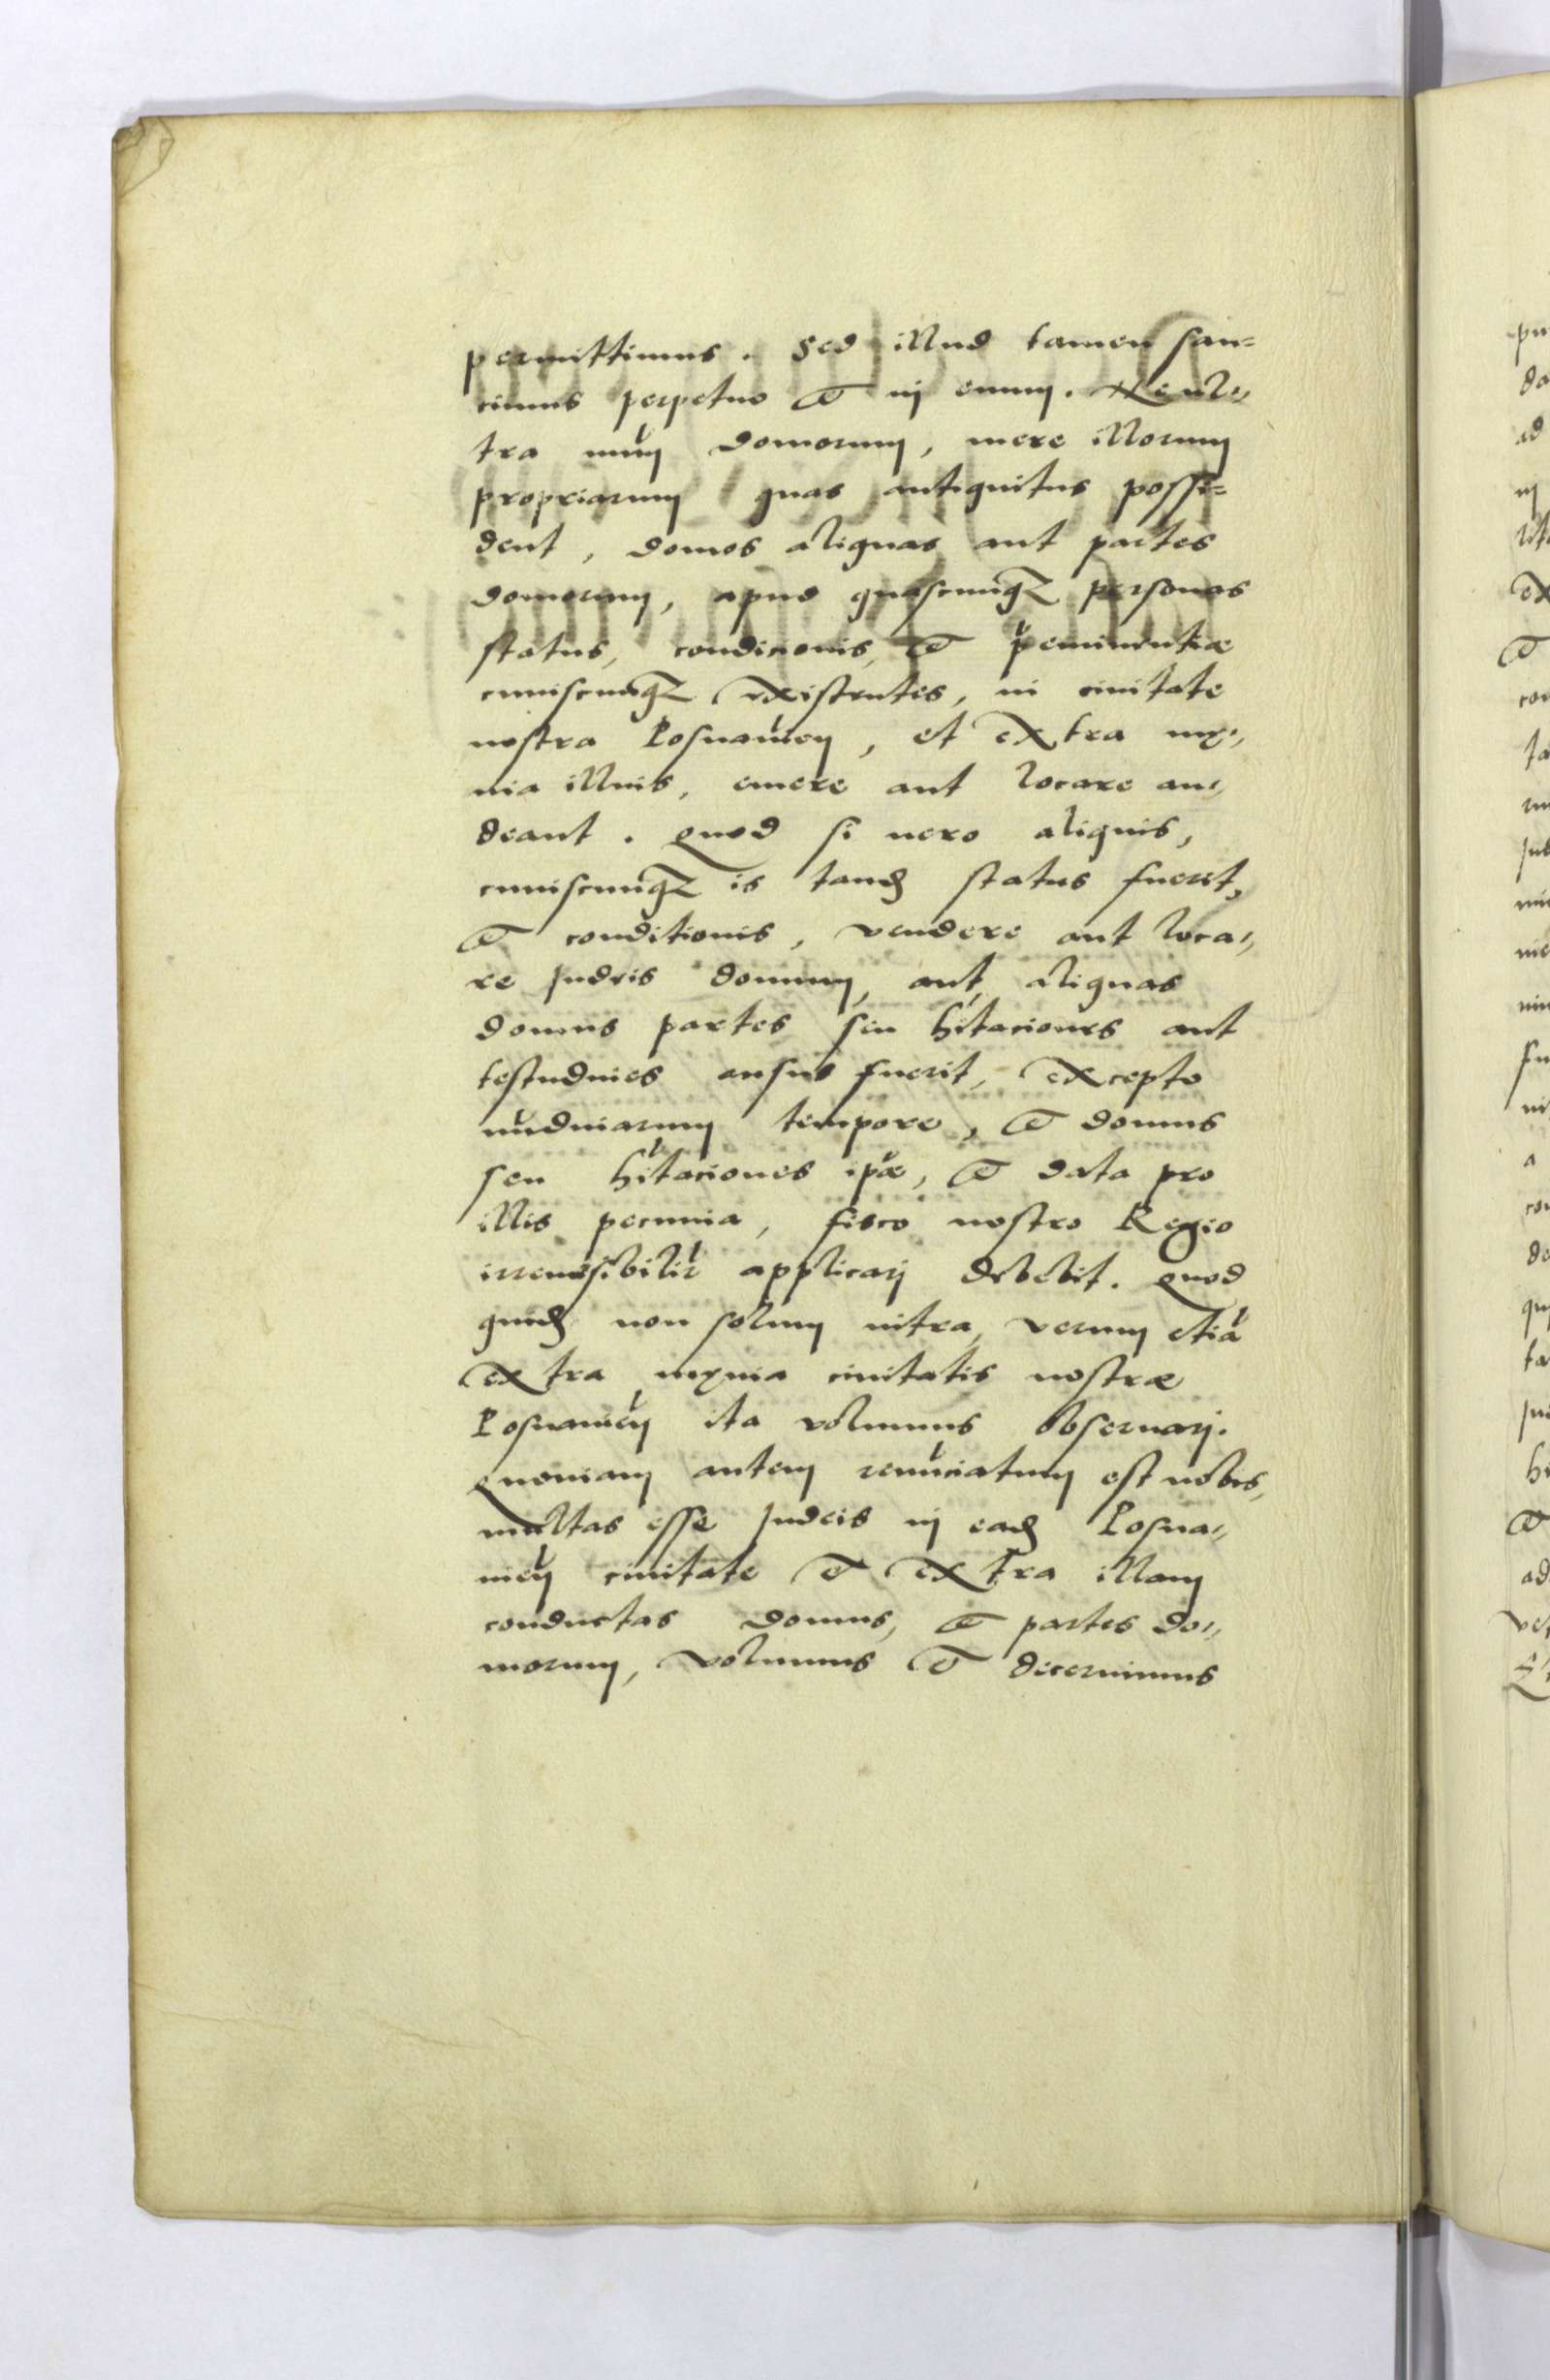 permittimus. Sed illud tamen san=
cimus perpetuo et in euum. Ne ul,,
tra num̄ domorum, mere illorum
propriarum quas antiquitus possi=
dent, domos aliquas aut partes
domorum, apud quascunqꝫ personas
status, condicionis, et p̄eminentiæ
cuiuscunqꝫ existentes, in ciuitate
nostra Posnanien̄, et extra mœ,,
nia illius, emere aut locare au,,
deant. Quod si uero aliquis,
cuiuscunqꝫ is tandē status fuerit,
et conditionis, vendere aut loca,,
re Judeis domum, aut aliquas
domus partes seu hītaciones aut
testudines ausus fuerit, excepto
nūdinarum tempore, et domus
seu hītaciones ipǣ, et data pro
illis pecunia, fisco nostro Regio
irremisibilir̄ applicarj debebit. Quod
quidē non solum intra, verum etiā
extra mœnia ciuitatis nostræ
Posnanien̄ ita volumus obseruarj.
Quoniam autem renūciatum est nobis,
multas esse Judeis in eadē Posna,,
nien̄ ciuitate et extra illam
conductas domus, et partes do,,
morum, volumus et decernimus